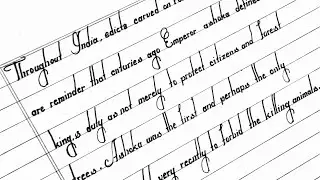 Throughout India, edicts carved on
are reminder that centuries ago Emperor ashoka defined
king,s duty as not merely to protect citizens and forest
trees. Ashoka was the first and perhaps the only
very recently to forbid the killing animals